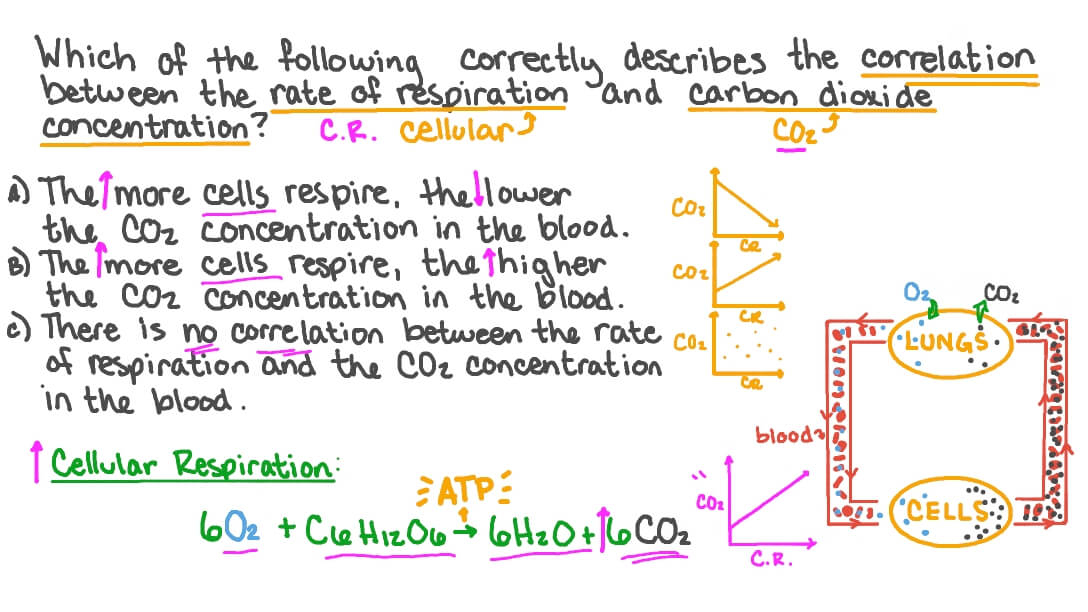 Which of the following correctly describes the correlation
between the rate of respiration and carbon dioxide
concentration?
C.R. cellular
CO₂
A) The ↑ more cells respire, the ↓ lower
the CO₂ concentration in the blood.
B) The ↑ more cells respire, the ↑ higher
the CO₂ concentration in the blood.
C) There is no correlation between the rate
of respiration and the CO₂ concentration
in the blood.
CO₂
CR
CO₂
CR
CO₂
CR
O₂
CO₂
LUNGS
blood
CELLS
↑ Cellular Respiration:
ATP
6O₂ + C₆H₁₂O₆ → 6H₂O + ↑6CO₂
CO₂
C.R.